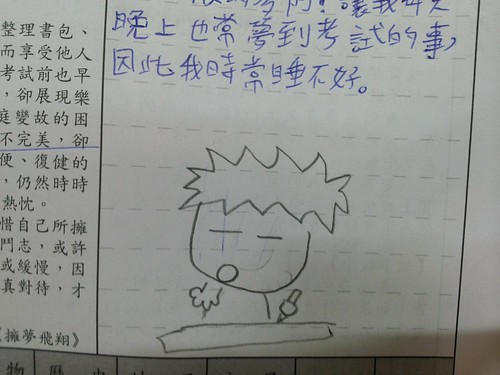 整理書包、
而享受他人
考試前也早
，卻展現樂
庭變故的困
不完美，卻
便、復健的
，仍然時時
熱忱。
惜自己所擁
鬥志，或許
或緩慢，因
真對待，才
擁夢飛翔》
讓我
晚上也常夢到考試的事,
因此我時常睡不好。
物 歷 史